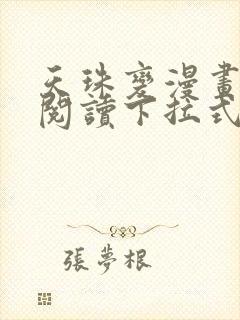 天珠變漫畫
閱讀下拉式
張夢根